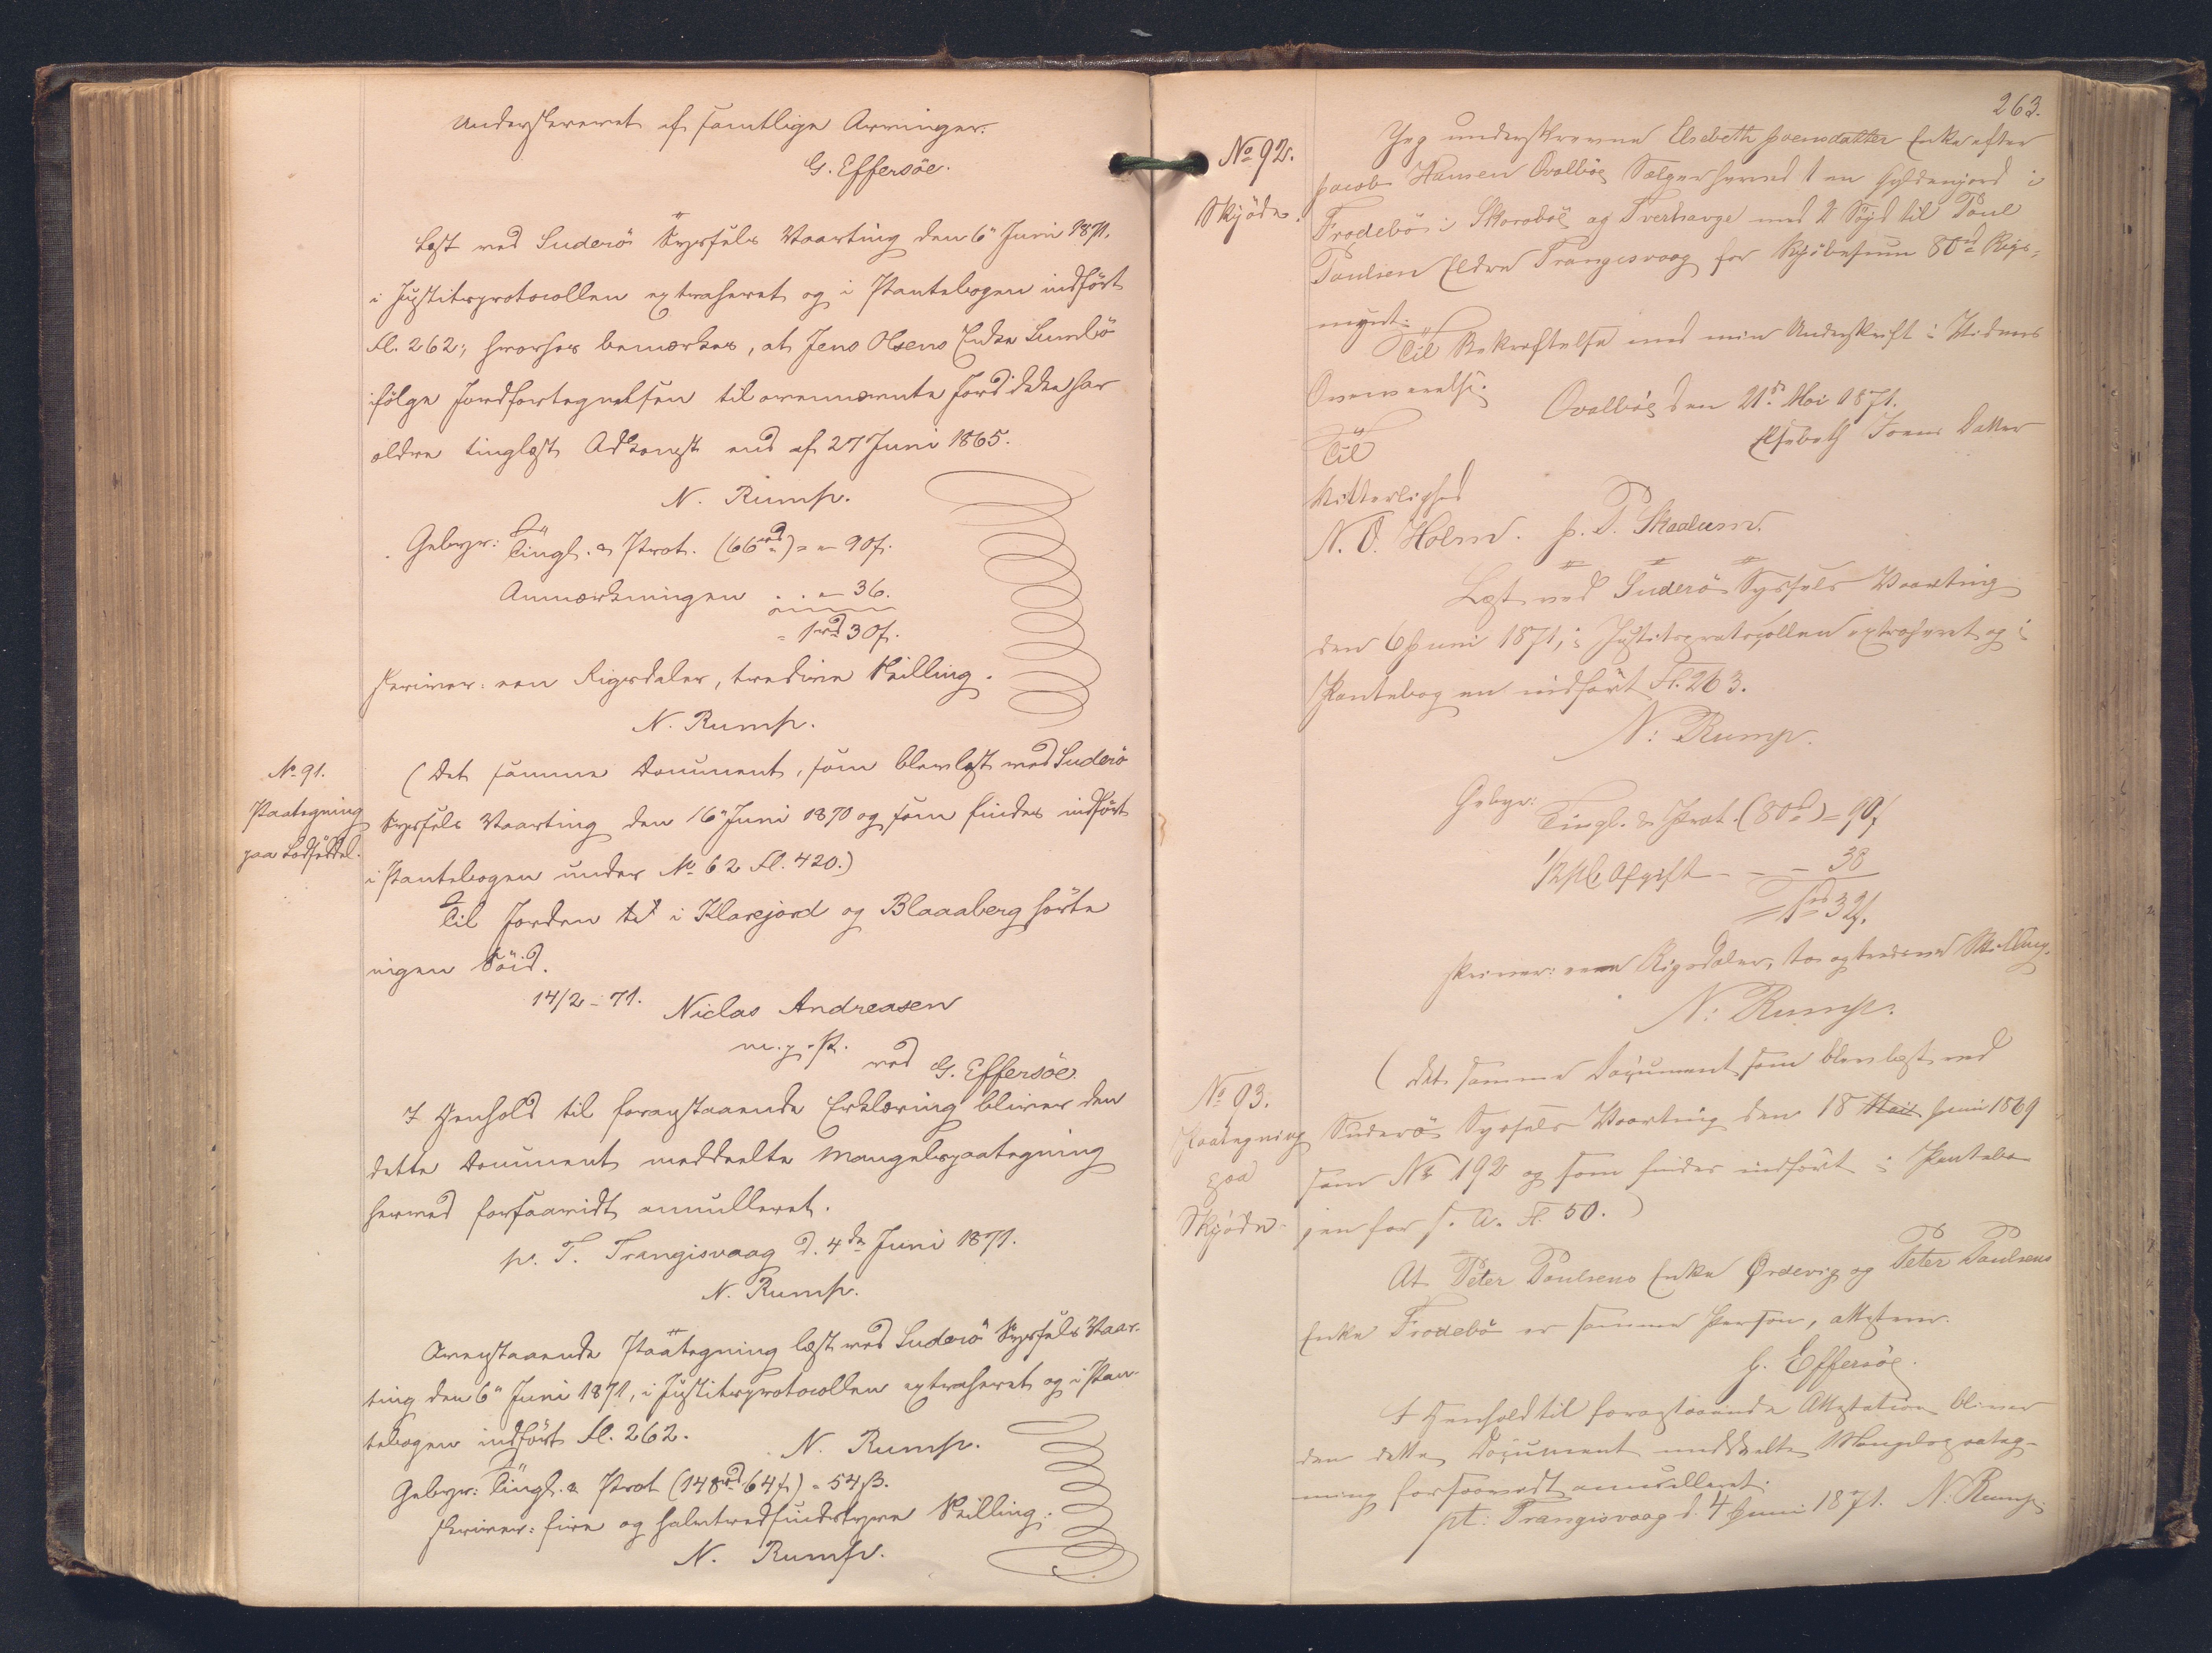 Underskrevet af samtlige Arvinger.
G. Effersöe.
Læst ved Suderö Syssels Vaarting den 6" Juni 1871,
i Justitsprotocollen extraheret og i Pantebogen indfört
Fl. 262; hvorhos bemærkes, at Jens Olsens Enke Sumbö
ifölge Jordfortegnelsen til ovennævnte Jord ikke har
ældre tinglæst Adkomst end af 27 Juni 1865.
N. Rump.
Gebyr: Tingl. & Prot. (66rd) = " 90 f.
Anmærkningen . . " 36.
= 1rd 30 f.
skriver: een Rigsdaler, tredive Skilling.
N. Rump.
No 91.
Paategning
paa Lodseddel.
(Det samme Document, som blev læst ved Suderö
Syssels Vaarting den 16" Juni 1870 og som findes indfört
i Pantebogen under No 62 Fl. 420.)
Til Jorden i Klarejord og Blaaaberg hörte
ingen Söid.
14/2 - 71. Niclas Andreasen
m. p. P.
ved G. Effersöe.
I Henhold til foranstaaende Erklæring bliver den
dette Document meddeelte Mangelspaategning
herved forsaavidt annulleret.
p. T. Trangisvaag d. 4de Juni 1871.
N. Rump.
Ovenstaaende Paategning læst ved Suderö Syssels Vaar-
ting den 6" Juni 1871, i Justitsprotocollen extraheret og i Pan-
tebogen indfört Fl. 262.
N. Rump.
Gebyr: Tingl. & Prot (148rd 64 f) = 54 ß.
skriver: fire og halvtredsindstyve Skilling.
N. Rump.
263.
No 92.
Skjöde.
Jeg underskrevne Elsebeth Joensdatter Enke efter
Jacob Hansen Qvalböe Sælger herved 1 en Gyldenjord i
Frodebö i Skoroböe og Tverhauge med 2 Söyd til Poul
Poulsen Eldre Trangisvaag for Kjöbesum 80rd Rigs-
mynt.
Til Bekræftelse med min Underskrift i Vidners
Overværelse.
Qvalböe den 21de Mai 1871.
Elsebeth Joens Datter
Til
Vitterlighed
N. O. Holm. J. P. Skaalum.
Læst ved Suderö Syssels Vaarting
den 6 Juni 1871, i Justitsprotocollen extraheret og i
Pantebogen indfört Fl. 263.
N: Rump.
Gebyr:
Tingl. & Prot. (80rd) = 90f
1/2 pCt Afgift - - - 38
= 1rd 32f.
skriver: een Rigsdaler, to og tredive Skilling.
N: Rump.
No 93.
Paategning
paa
Skjöde.
(det samme Document som blev læst ved
Suderö Syssels Vaarting den 18 Mai Juni 1869
som No 192 og som findes indfört i Pantebo-
gen for s. A. Fl. 50.)
At Peter Poulsens Enke Ørdevig og Peter Poulsens
Enke Frodebö er samme Person, attesterer.
G. Effersöe.
I Henhold til foranstaaende Attestation bliver
den dette Document meddeelte Mangelspaateg-
ning forsaavidt annulleret.
pt: Trangisvaag d. 4 Juni 1871. N: Rump.